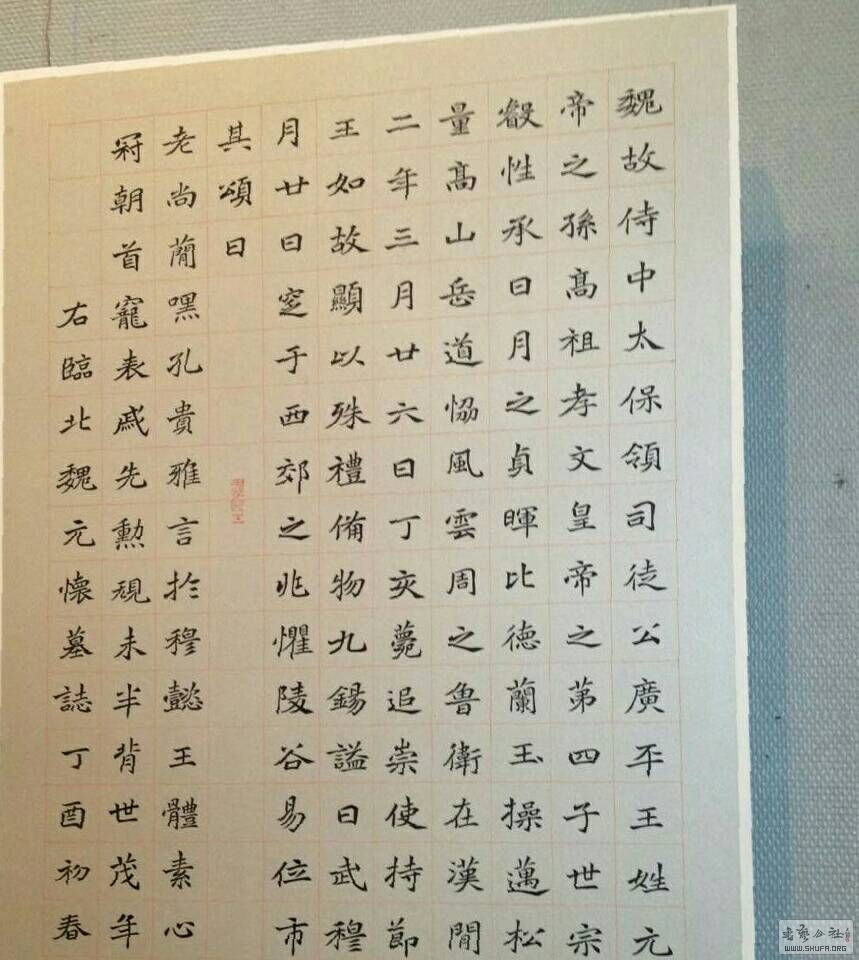 魏故侍中太保領司徒公廣平王姓元
帝之孫高祖孝文皇帝之第四子世宗
叡性承日月之貞暉比德蘭玉操邁松
量高山岳道恊風雲周之魯衛在漢閒
二年三月廿六日丁亥薨追崇使持節
王如故顯以殊禮備物九錫謚曰武穆
月廿日窆于西郊之兆懼陵谷易位市
其頌曰
老尚蕳嘿孔貴雅言於穆懿王體素心
冠朝首寵表戚先勲規未半背世茂年
右臨北魏元懷墓誌丁酉初春
书艺公社
WWW.SHUFA.ORG